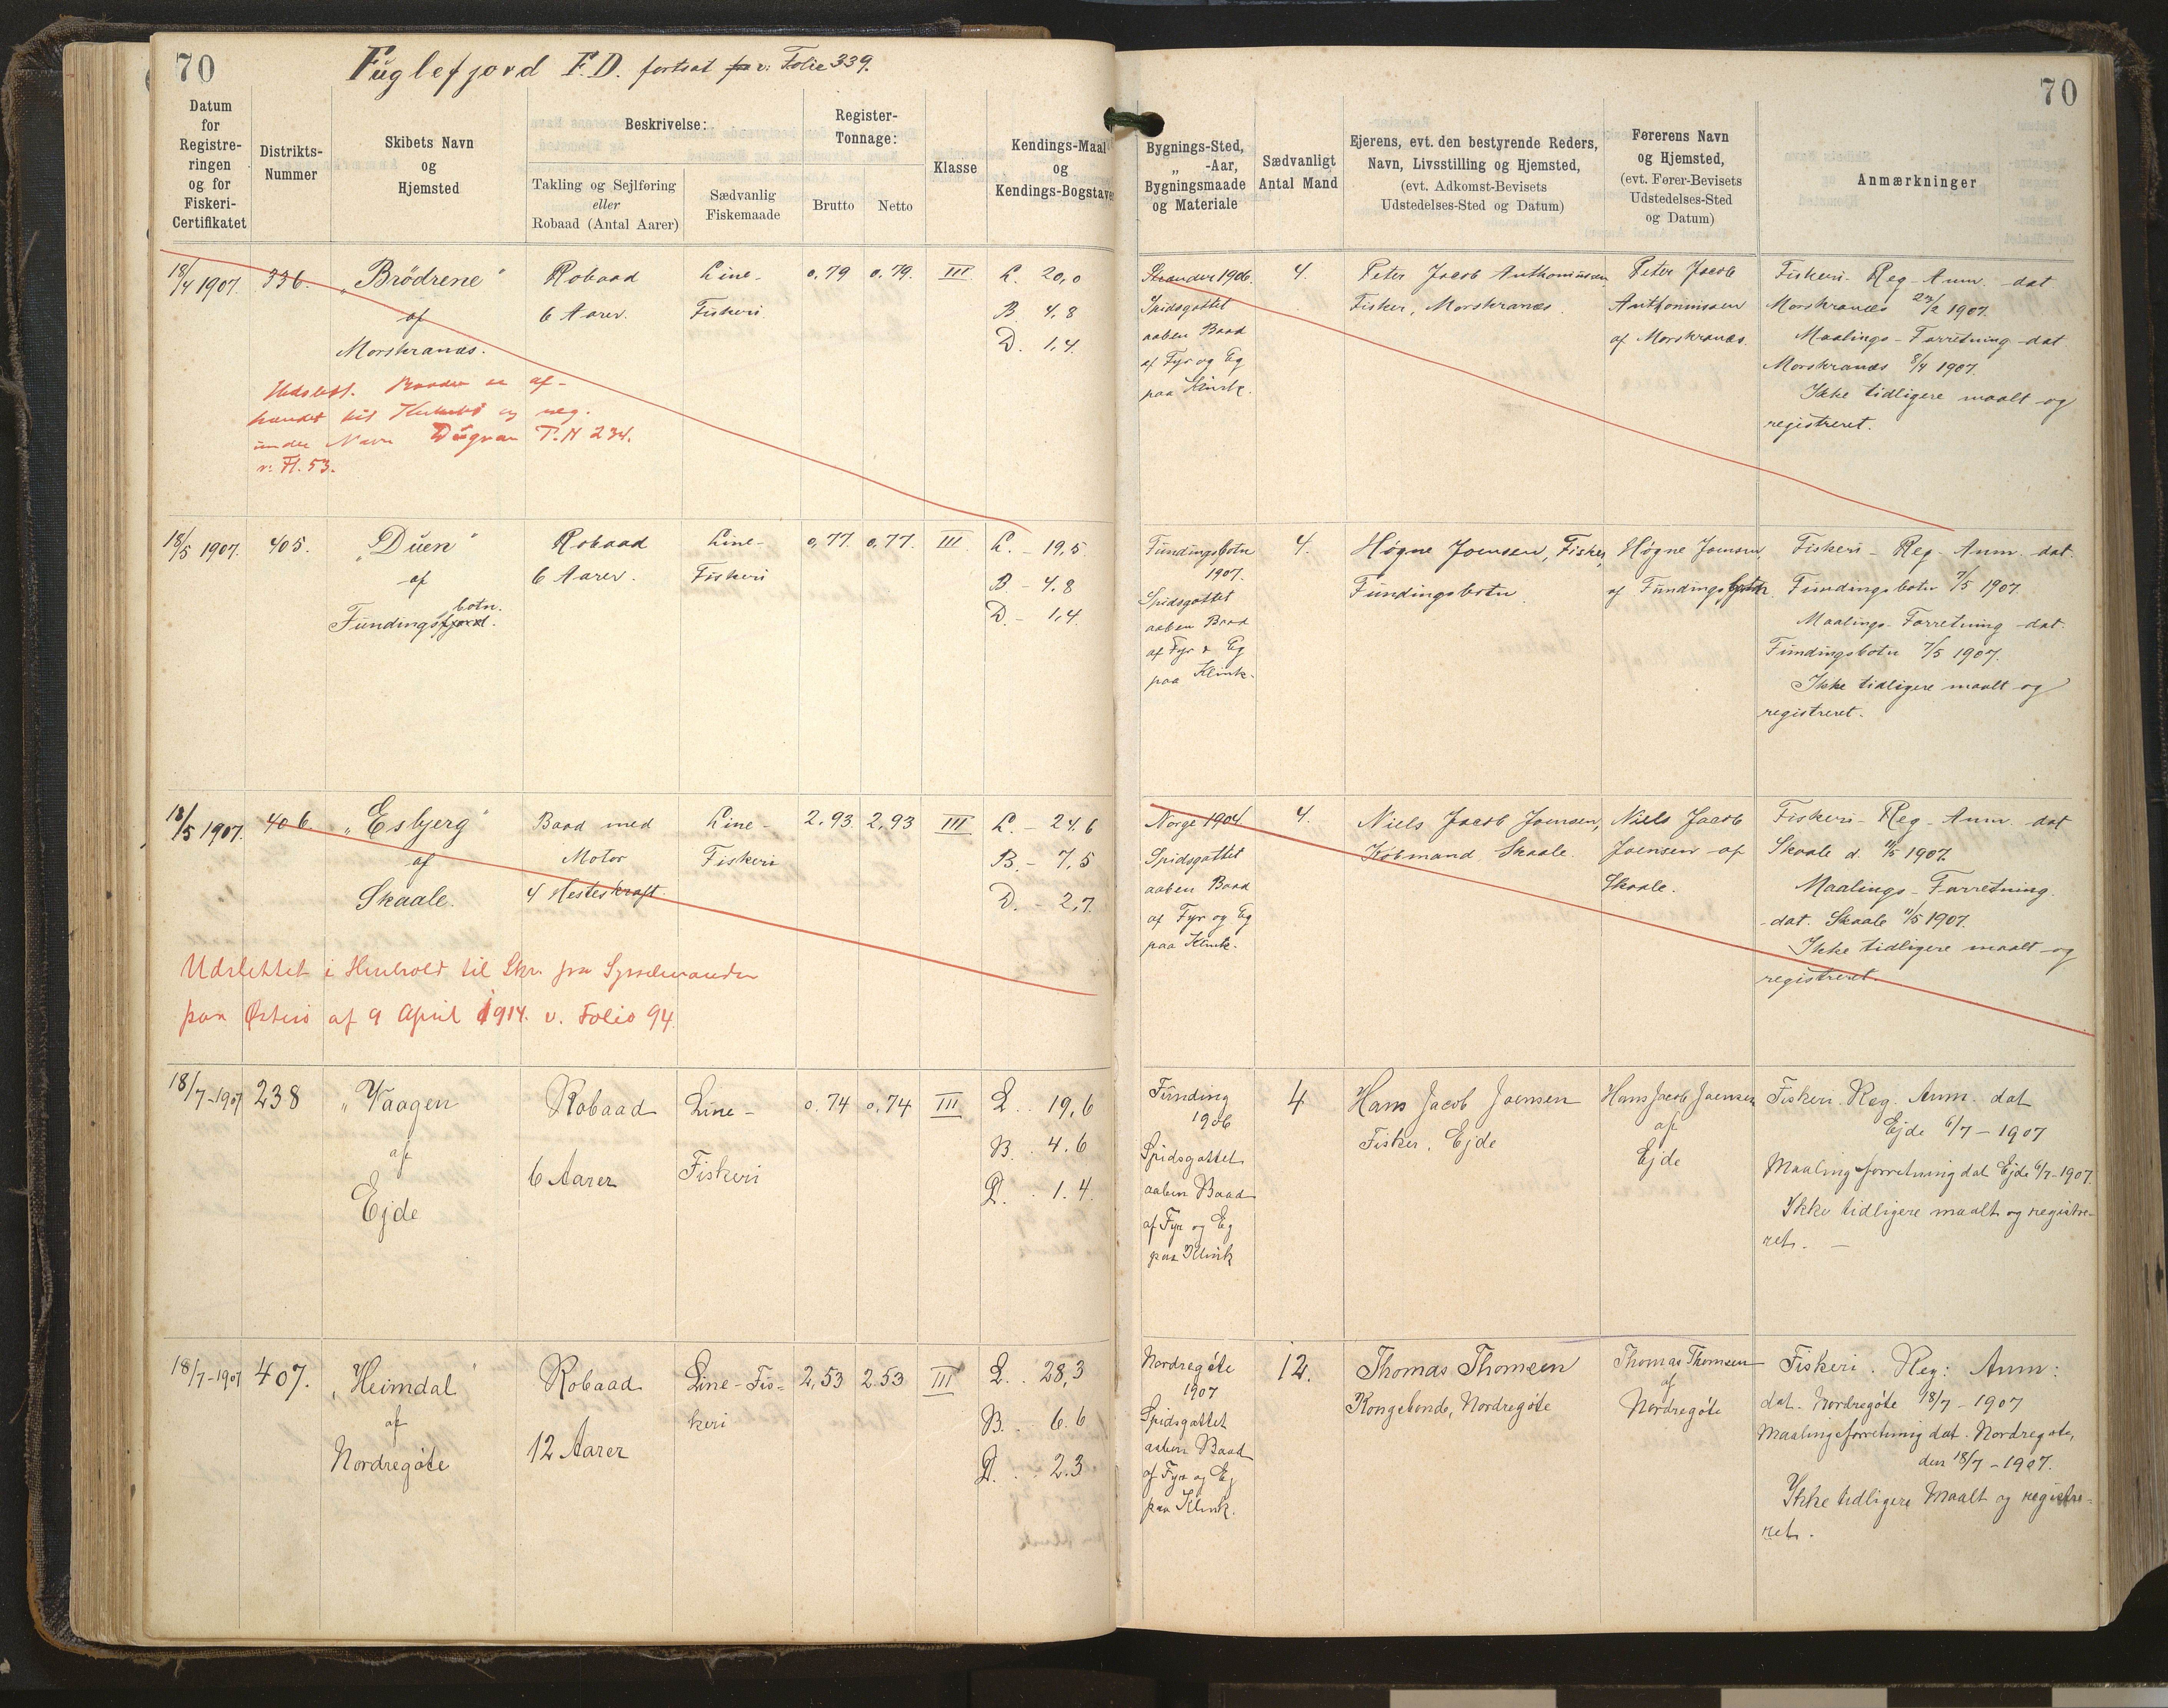 70
Fuglefjord F.D. fortsat v: Folie 339.
Datum
for
Registre-
ringen
og for
Fiskeri-
Certifikatet
Distrikts-
Nummer
Skibets Navn
og
Hjemsted
Beskrivelse:
Takling og Sejlføring
eller
Robaad (Antal Aarer)
Sædvanlig
Fiskemaade
Register-
Tonnage:
Brutto
Netto
Klasse
Kendings-Maal
og
Kendings-Bogstaver
18/4 1907. 336. „Brödrene" Robaad Line- 0,79 0.79. III L. 20,0
af 6 Aarer. Fiskeri B 4,8
Morskranæs. D. 1,4.
Udslett. Baaden er af-
hændet til og reg.
under Navn Dugvan T.N 234.
v: Fl. 53.
18/5 1907. 405. „Duen" Robaad Line- 0,77. 0,77. III L. - 19,5
af 6 Aarer. Fiskeri B - 4,8
botn.
Fundingsfjord. D. - 1,4.
18/5 1907. 406. „Esbjerg" Baad med Line- 2.93 2,93 III L. - 24.6
af Motor Fiskeri B. - 7,5
Skaale. 4 Hesteskraft. D. - 2,7.
Udslettet i Henhold til Skr. fra Sysselmanden
paa Østerø af 9 April 1914. v. Folio 94
18/7-1907 238 „Vaagen Robaad Line- 0.74 0,74 III L.. 19,6
af B. 4.6
Ejde 6 Aarer Fiskeri D. . 1.4.
18/7-1907 407. „Heimdal" Robaad Line-Fis- 2,53 2.53 III L.. 28,3
af keri B. . 6.6
Nordregöte 12 Aarer D. . . 2.3
70
Bygnings-Sted,
„ -Aar,
Bygningsmaade
og Materiale
Sædvanligt
Antal Mand
Ejerens, evt. den bestyrende Reders,
Navn, Livsstilling og Hjemsted,
(evt. Adkomst-Bevisets
Udstedelses-Sted og Datum)
Førerens Navn
og Hjemsted,
(evt. Fører-Bevisets
Udstedelses-Sted
og Datum)
Anmærkninger
Strander 1906.
Spidsgattet
aaben Baad
af Fyr og Eg
paa Klink.
4.
Peter Jacob Anthoniussen
Fisker, Morskranæs.
Peter Jacob
Anthoniussen
af Morskranæs.
Fiskeri- Reg- Anm. dat
Morskranæs 23/2 1907.
Maalings- Forretning dat
Morskranæs 8/4 1907.
Ikke tidligere maalt og
registreret.
Fundingsbotn
1907.
Spidsgattet
aaben Baad
af Fyr & Eg
paa Klink.
4.
Høgne Joensen, Fisker,
Fundingsbotn
Høgne Joensen,
af Fundingsbotn.
Fiskeri- Reg- Anm. dat.
Fundingsbotn 7/5 1907.
Maalings- Forretning dat.
Fundingsbotn 7/5 1907.
Ikke tidligere maalt og
registreret.
Norge 1904
Spidsgattet
aaben Baad
af Fyr og Eg
paa Klink.
4.
Niels Jacob Joensen,
Købmand, Skaale.
Niels Jacob
Joensen af
Skaale.
Fiskeri- Reg- Anm. dat
Skaale d. 11/5 1907.
Maalings- Forretning.
-dat. Skaale 11/5 1907.
Ikke tidligere maalt og
registreret.
Funding
1906
Spidsgattet
aaben Baad
af Fyr og Eg
paa Klink
4
Hans Jacob Joensen
Fisker, Ejde
Hans Jacob Joensen
af
Ejde
Fiskeri. Reg. Anm. dat
Ejde 6/7 - 1907
Maalingsforretning dat Ejde 6/7-1907.
Ikke tidligere maalt og registre-
ret. —
Nordregöte
1907
Spidsgattet
aaben Baad
af Fyr og Eg
paa Klink.
12.
Thomas Thomsen
Kongebonde, Nordregöte
Thomas Thomsen
af
Nordregöte
Fiskeri. Reg: Anm:
dat. Nordregöte 18/7 - 1907
Maalingsforretning dat. Nordregöte,
den 18/7 - 1907.
Ikke tidligere Maalt og registre-
ret.